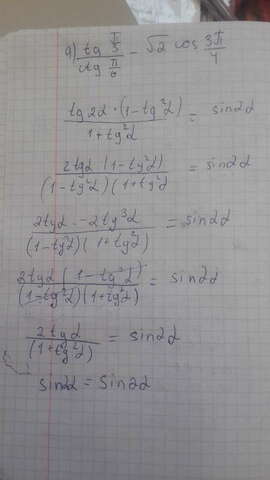 a) tg π/3 / ctg π/6 - √2 cos 3π/4
tg2α · (1 - tg²α) / 1 + tg²α = sin2α
2tgα (1 - tg²α) / (1 - tg²α)(1 + tg²α = sin2α
2tgα - 2tg³α / (1 - tg²α)(1 + tg²α) = sin2α
2tgα (1 - tg²α) / (1 - tg²α)(1 + tg²α) = sin2α
2tgα / (1 + tg²α) = sin2α
sin2α = sin2α